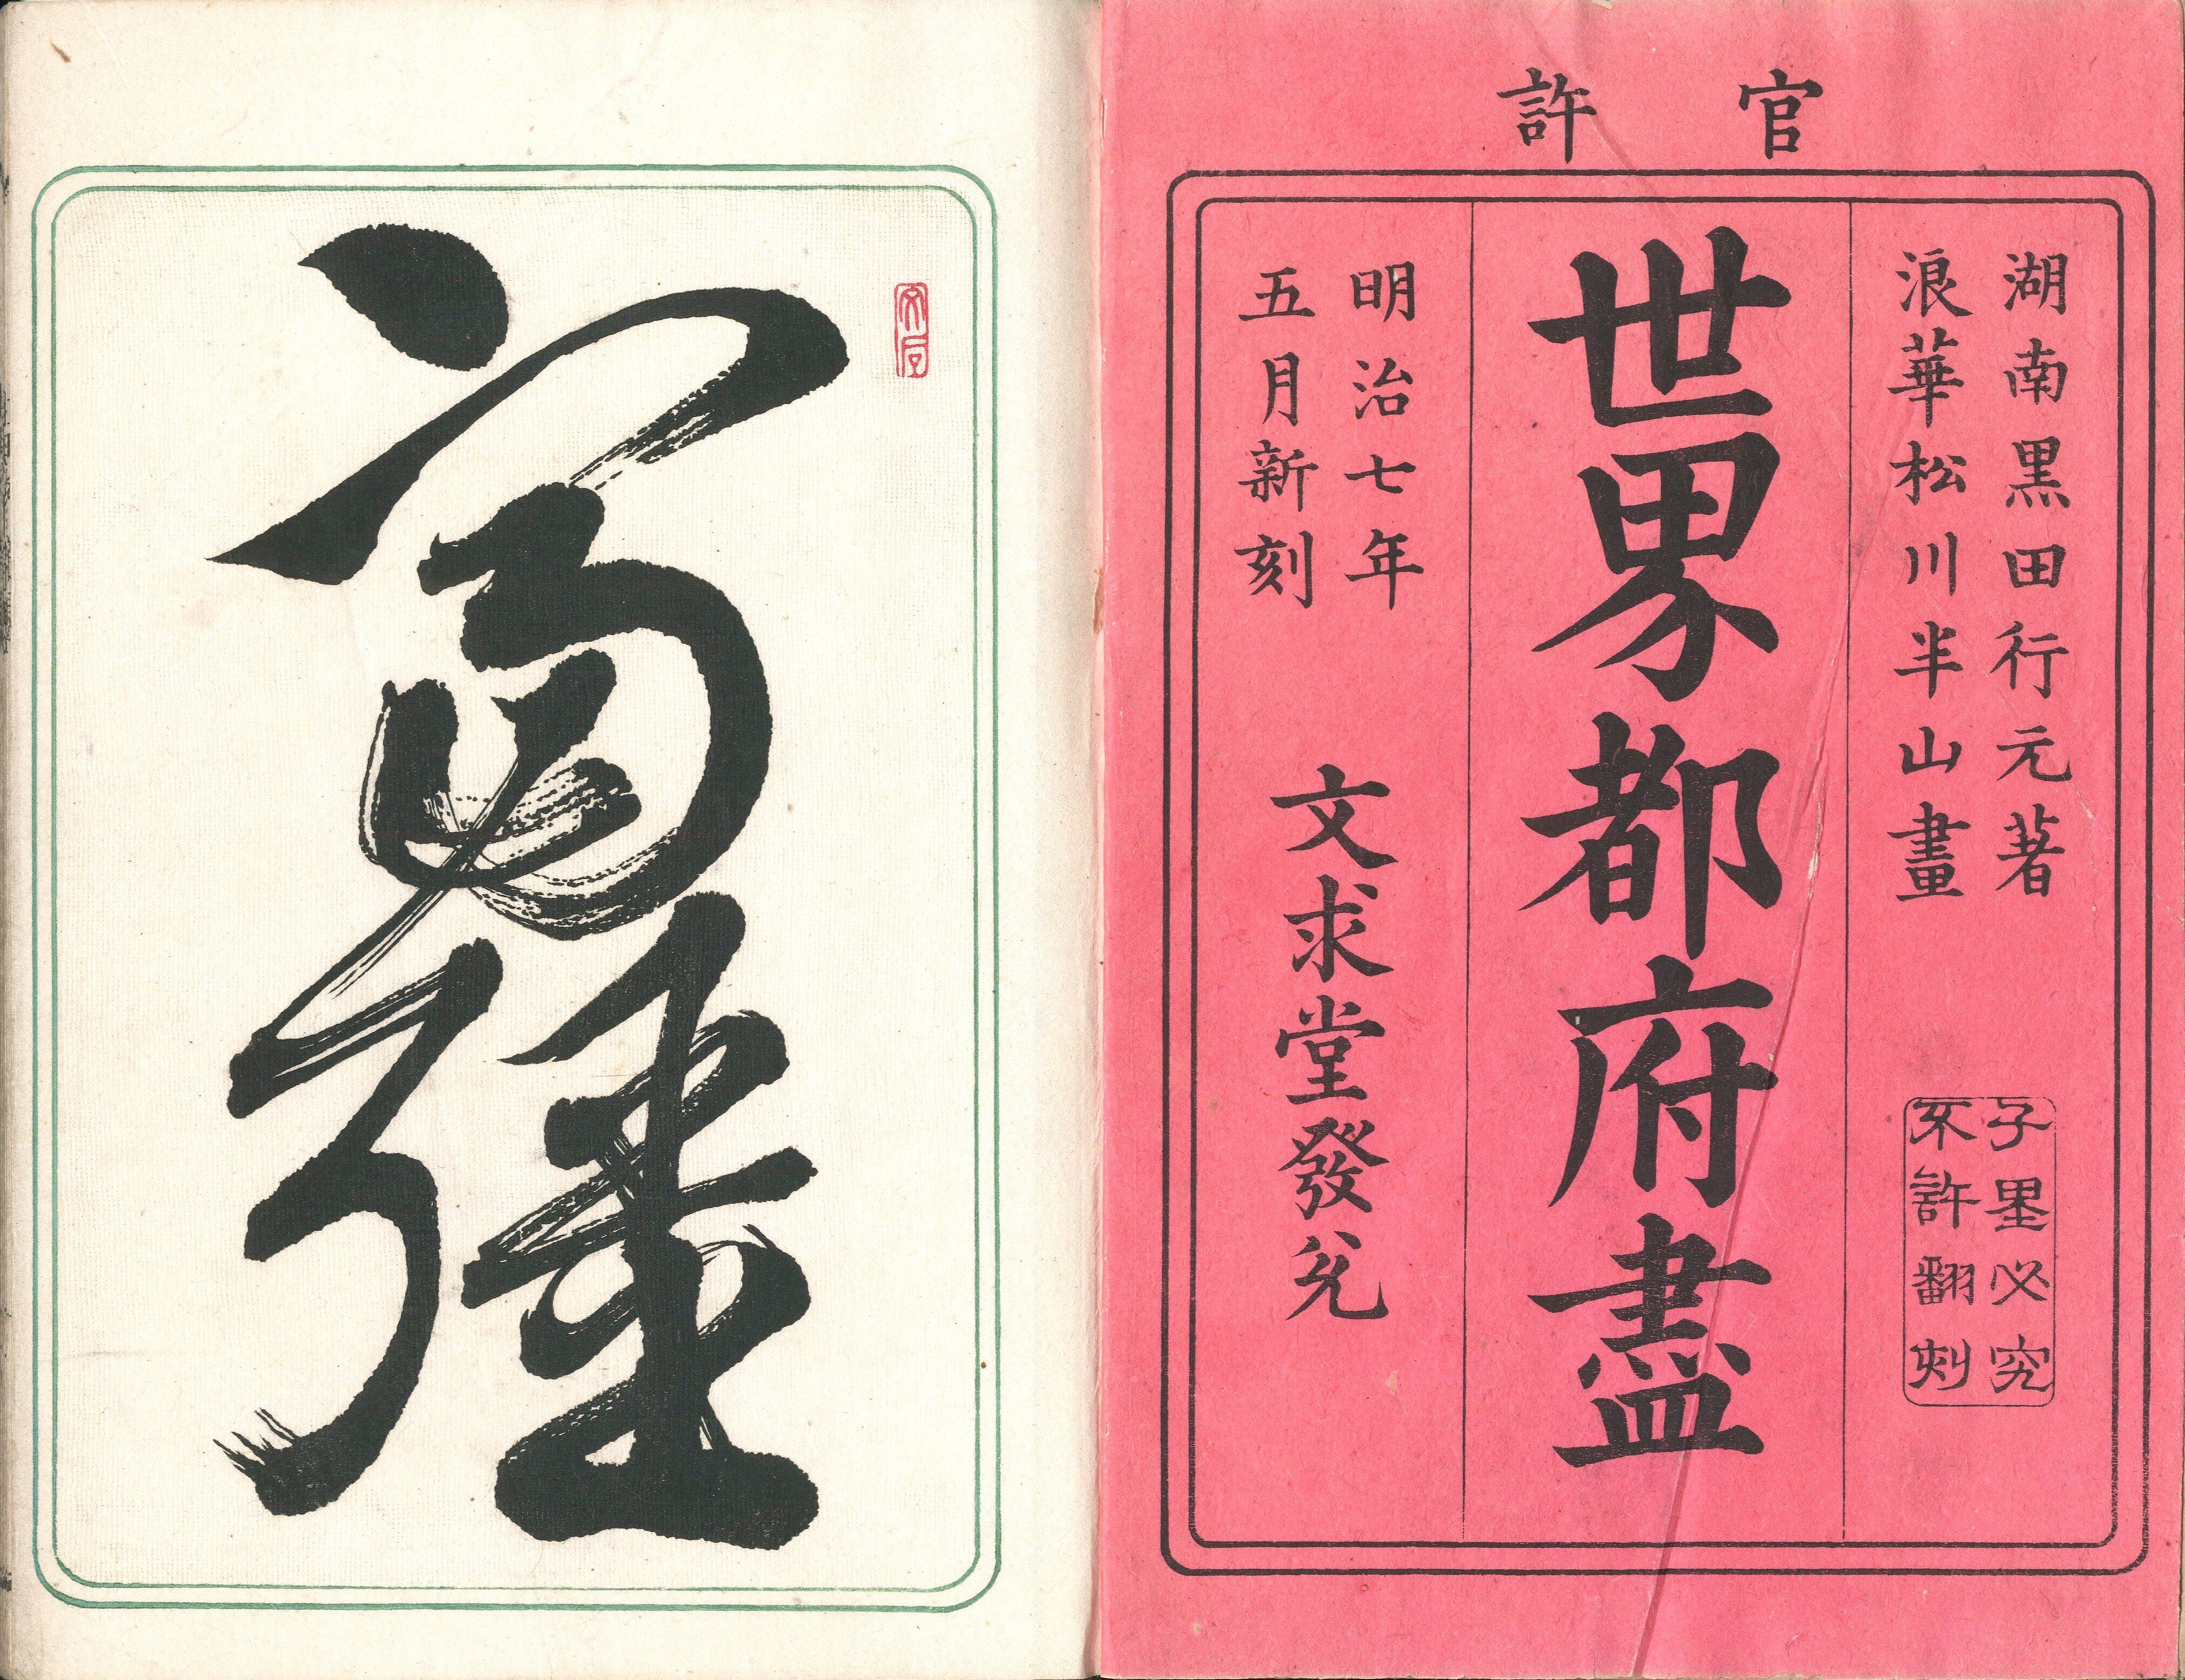 官許
湖南黒田行元著
浪華松川半山畫
千里必究
不許翻刻
世界都府盡
明治七年
五月新刻
文求堂發兌
富彊